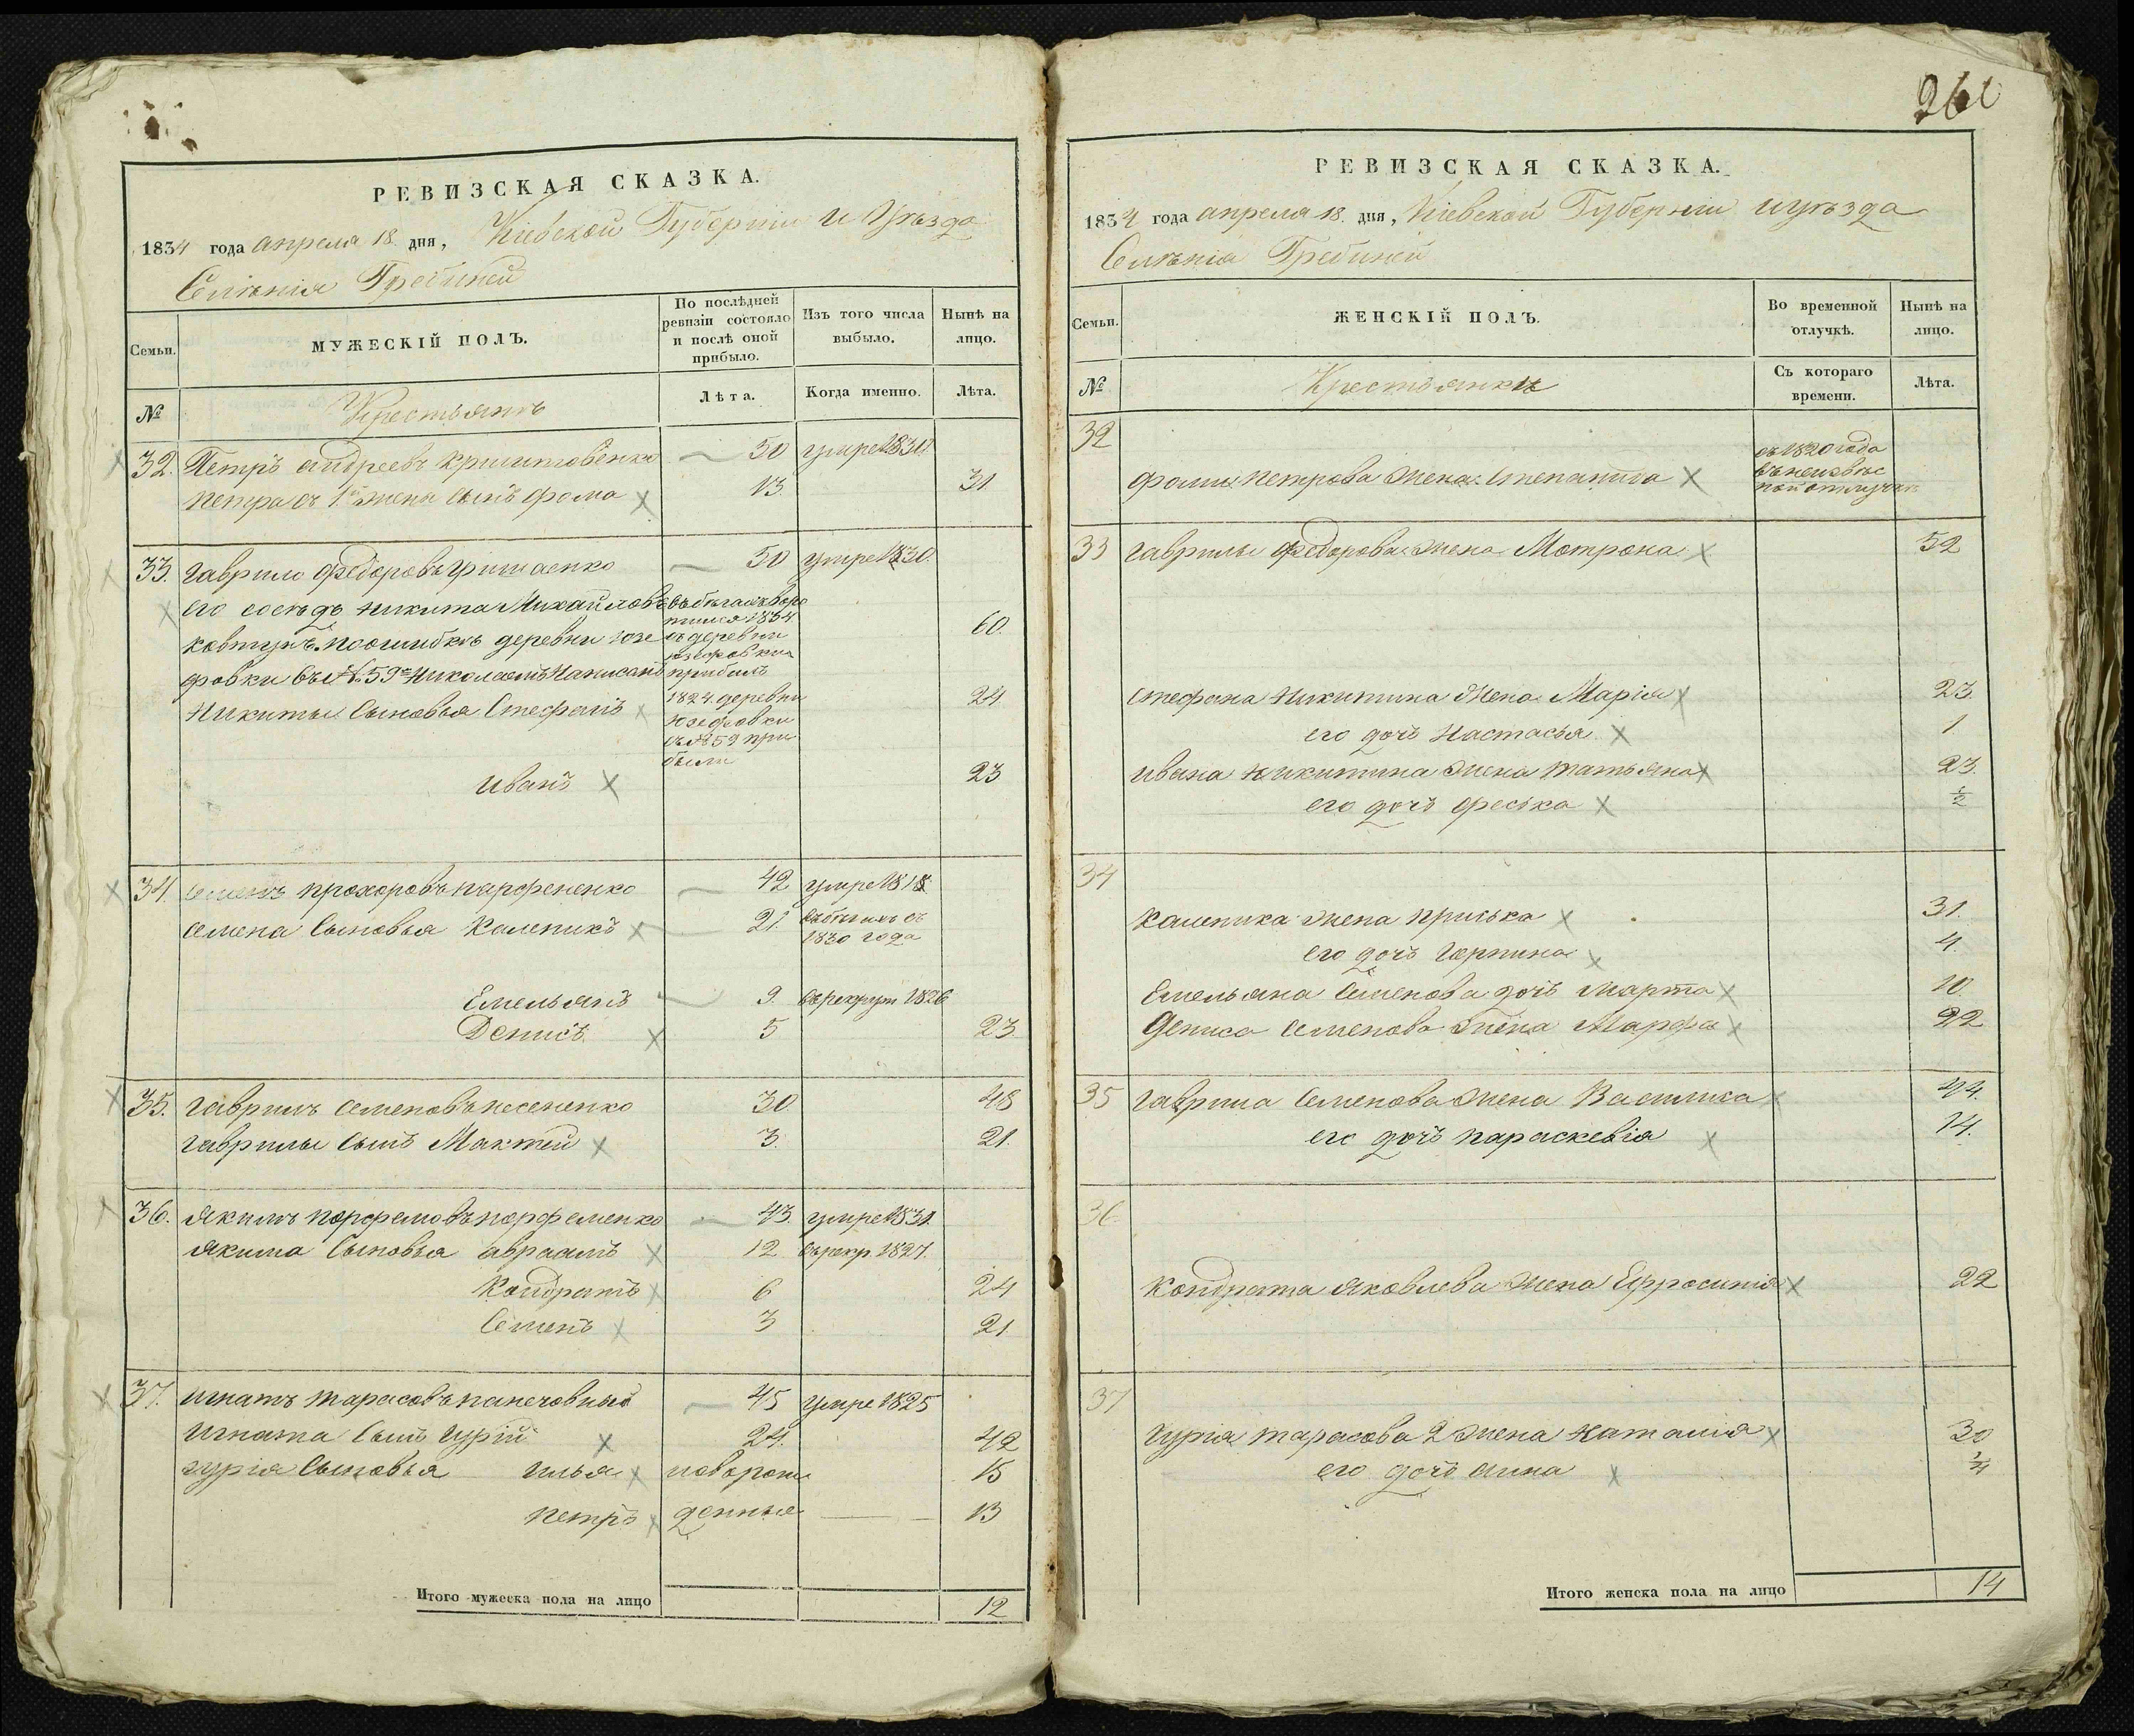 РЕВИЗСКАЯ СКАЗКА.
1834 года апреля 18 дня, Кіевской Губерніи и Уѣзда
Селѣнія Гребиней
Семьи.
МУЖЕСКІЙ ПОЛЪ.
По послѣдней ревизіи состояло и послѣ оной прибыло.
Изъ того числа выбыло.
Нынѣ на лицо.
№
Крестьянъ
Лѣта.
Когда именно.
Лѣта.
32. Петръ андреевъ 50 умре 1830
Петра съ 1й жены сынъ фома 13. 31
33. гаврило федоровъ гришаенко 50 умре 1830.
его сосѣдъ никита Михайловъ въ бѣгахъ воро
тился 1834
ковтунъ. по ошибкѣ деревни юзе съ деревни 60.
юзефовки
фовки въ № 59м Николаемъ Написанъ прибылъ
Никиты Сыновья Стефанъ 1824. деревни 24
юзефовки
съ № 59 при
были
иванъ 23
34. семенъ прохоровъ парфененко 42 умре 1818
семена Сыновья Каленикъ 21. въ бѣгахъ съ
1830 года
Емельянъ 9. въ рекрут 1826
Денисъ 5 23.
35. гаврилъ семеновъ несененко 30 48
гаврилы сынъ Мактей 3. 21.
36. якимъ парфемовъ парфеменко 43. умре 1831.
якима Сыновья авраамъ 12 въ рекр. 1827.
Кондратъ 6 24
Семенъ 3 21
37. игнатъ тарасовъ 45 умре 1825
игната Сынъ гурій 24. 42
гурія Сыновья илья новорож 15
петръ денные 13
Итого мужеска пола на лицо 12
261
РЕВИЗСКАЯ СКАЗКА.
1834 года апреля 18. дня, Кіевской Губерніи и уѣзда
Селѣнія Гребиней
Семьи.
ЖЕНСКІЙ ПОЛЪ.
Во временной отлучкѣ.
Нынѣ на лицо.
№
Крестьянки
Съ котораго времени.
Лѣта.
32
съ 1820 года
фомы петрова жена степанида въ неизвѣс
ной отлучкѣ
33 гаврилы федорова жена Мотрона 52
стефана никитина жена Марія 23.
его дочь настасья 1
ивана никитина жена татьяна 23.
его дочь феська ½
34
каленика жена приська 31.
его дочь горпина 4.
Емельяна Семенова дочь марта 10.
дениса семенова жена Марфа 22
35 гаврила Семенова жена Василиса 44.
его дочь параскевія 14.
36.
кондрата яковлева жена Ефросинія 22
37
гурія тарасова 2 жена наталія 30
его дочь анна ¼
Итого женска пола на лицо 14